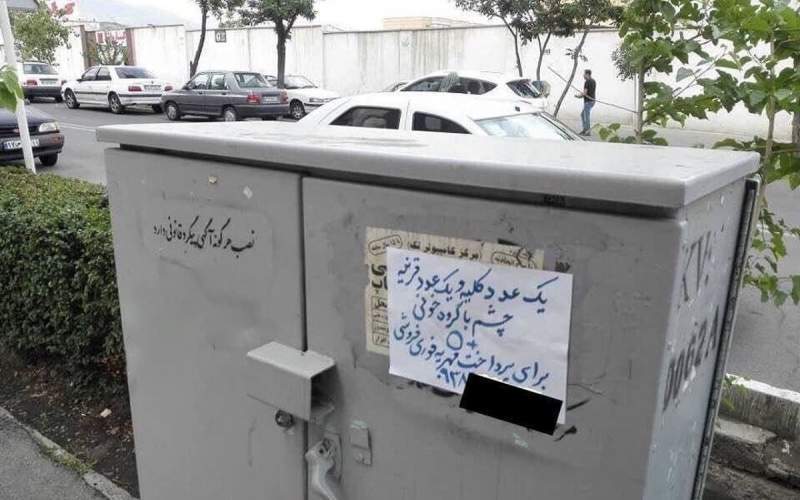 نصب هرگونه آگهی پیگرد قانونی دارد
مرکز کامپیوتر تک
یک عدد کلیه و یک عدد قرنیه
چشم با گروه خونی
O+
برای پرداخت مهریه فوری فروشی
۰۹۳۸
KV